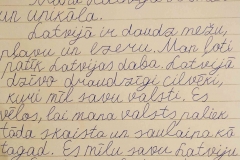 un upīkāla.
Latvijā ir daudz mežu,
pļavu un ezeru. Man ļoti
patīk Latvijas daba. Latvijā
dzīvo draudzīgi cilvēki,
kuri mīl savu valsti. Es
vēlos, lai mana valsts paliek
tāda skaista un saulaina kā
tagad. Es mīlu savu Latviju